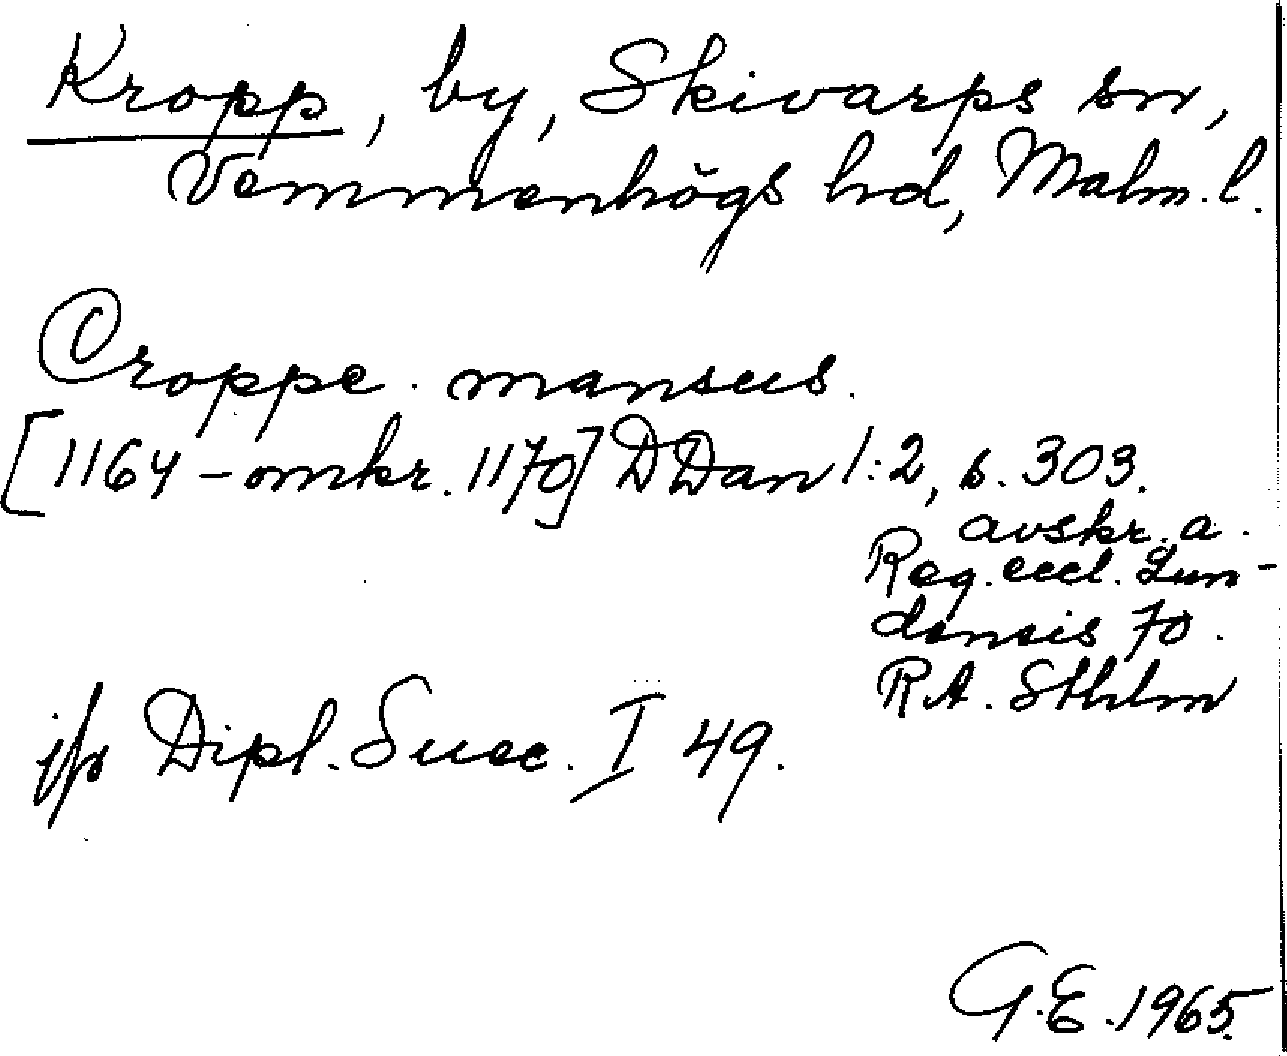 Kropp, by, Skivarps sn,
Vemmenhögs hd, Malm. l.
Croppe. mansus.
[1164 – omkr. 1170] DDan 1:2, s. 303.
avskr. a.
Reg. eccl. Lun-
densis 70.
RA. Sthlm
jfr Dipl. Suec. I 49.
G.E. 1965.